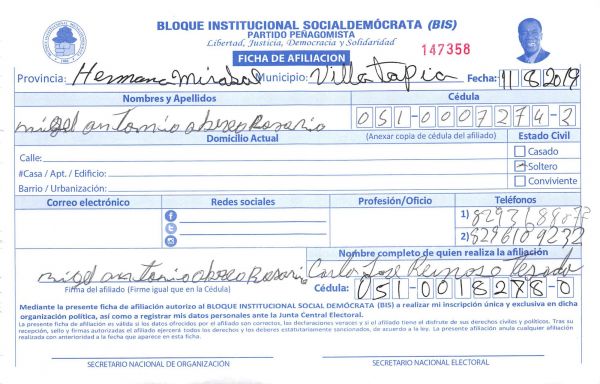 BLOQUE INSTITUCIONAL SOCIALDEMÓCRATA (BIS)
PARTIDO PEÑAGOMISTA
Libertad, Justicia, Democracia y Solidaridad
FICHA DE AFILIACIÓN
147358
Provincia: Hermana Mirabal Municipio: Villa tapia Fecha: 11 8 2019
Nombres y Apellidos Cédula
migel antonio abreo Rosario 051-0007274-2
Domicilio Actual (Anexar copia de cédula del afiliado) Estado Civil
Calle: Casado
#Casa / Apt. / Edificio: Soltero
Barrio / Urbanización: Conviviente
Correo electrónico Redes sociales Profesión/Oficio Teléfonos
1)
2) 8296109232
Nombre completo de quien realiza la afiliación
migel antonio abreo Rosario Carlos Jose Reinoso Tejada
Firma del afiliado (Firme igual que en la Cédula) Cédula: 051-0018278-0
Mediante la presente ficha de afiliación autorizo al BLOQUE INSTITUCIONAL SOCIAL DEMÓCRATA (BIS) a realizar mi inscripción única y exclusiva en dicha
organización política, así como a registrar mis datos personales ante la Junta Central Electoral.
La presente ficha de afiliación es válida si los datos ofrecidos por el afiliado son correctos, las declaraciones veraces y si el afiliado tiene el disfrute de sus derechos civiles y políticos. Tras su
recepción, sello y firmas autorizadas el afiliado ejercerá todos los derechos y los deberes estatutariamente sancionados, de acuerdo a la ley. La presente afiliación anula cualquier afiliación
realizada con anterioridad a la fecha que aparece en esta ficha.
SECRETARIO NACIONAL DE ORGANIZACIÓN SECRETARIO NACIONAL ELECTORAL